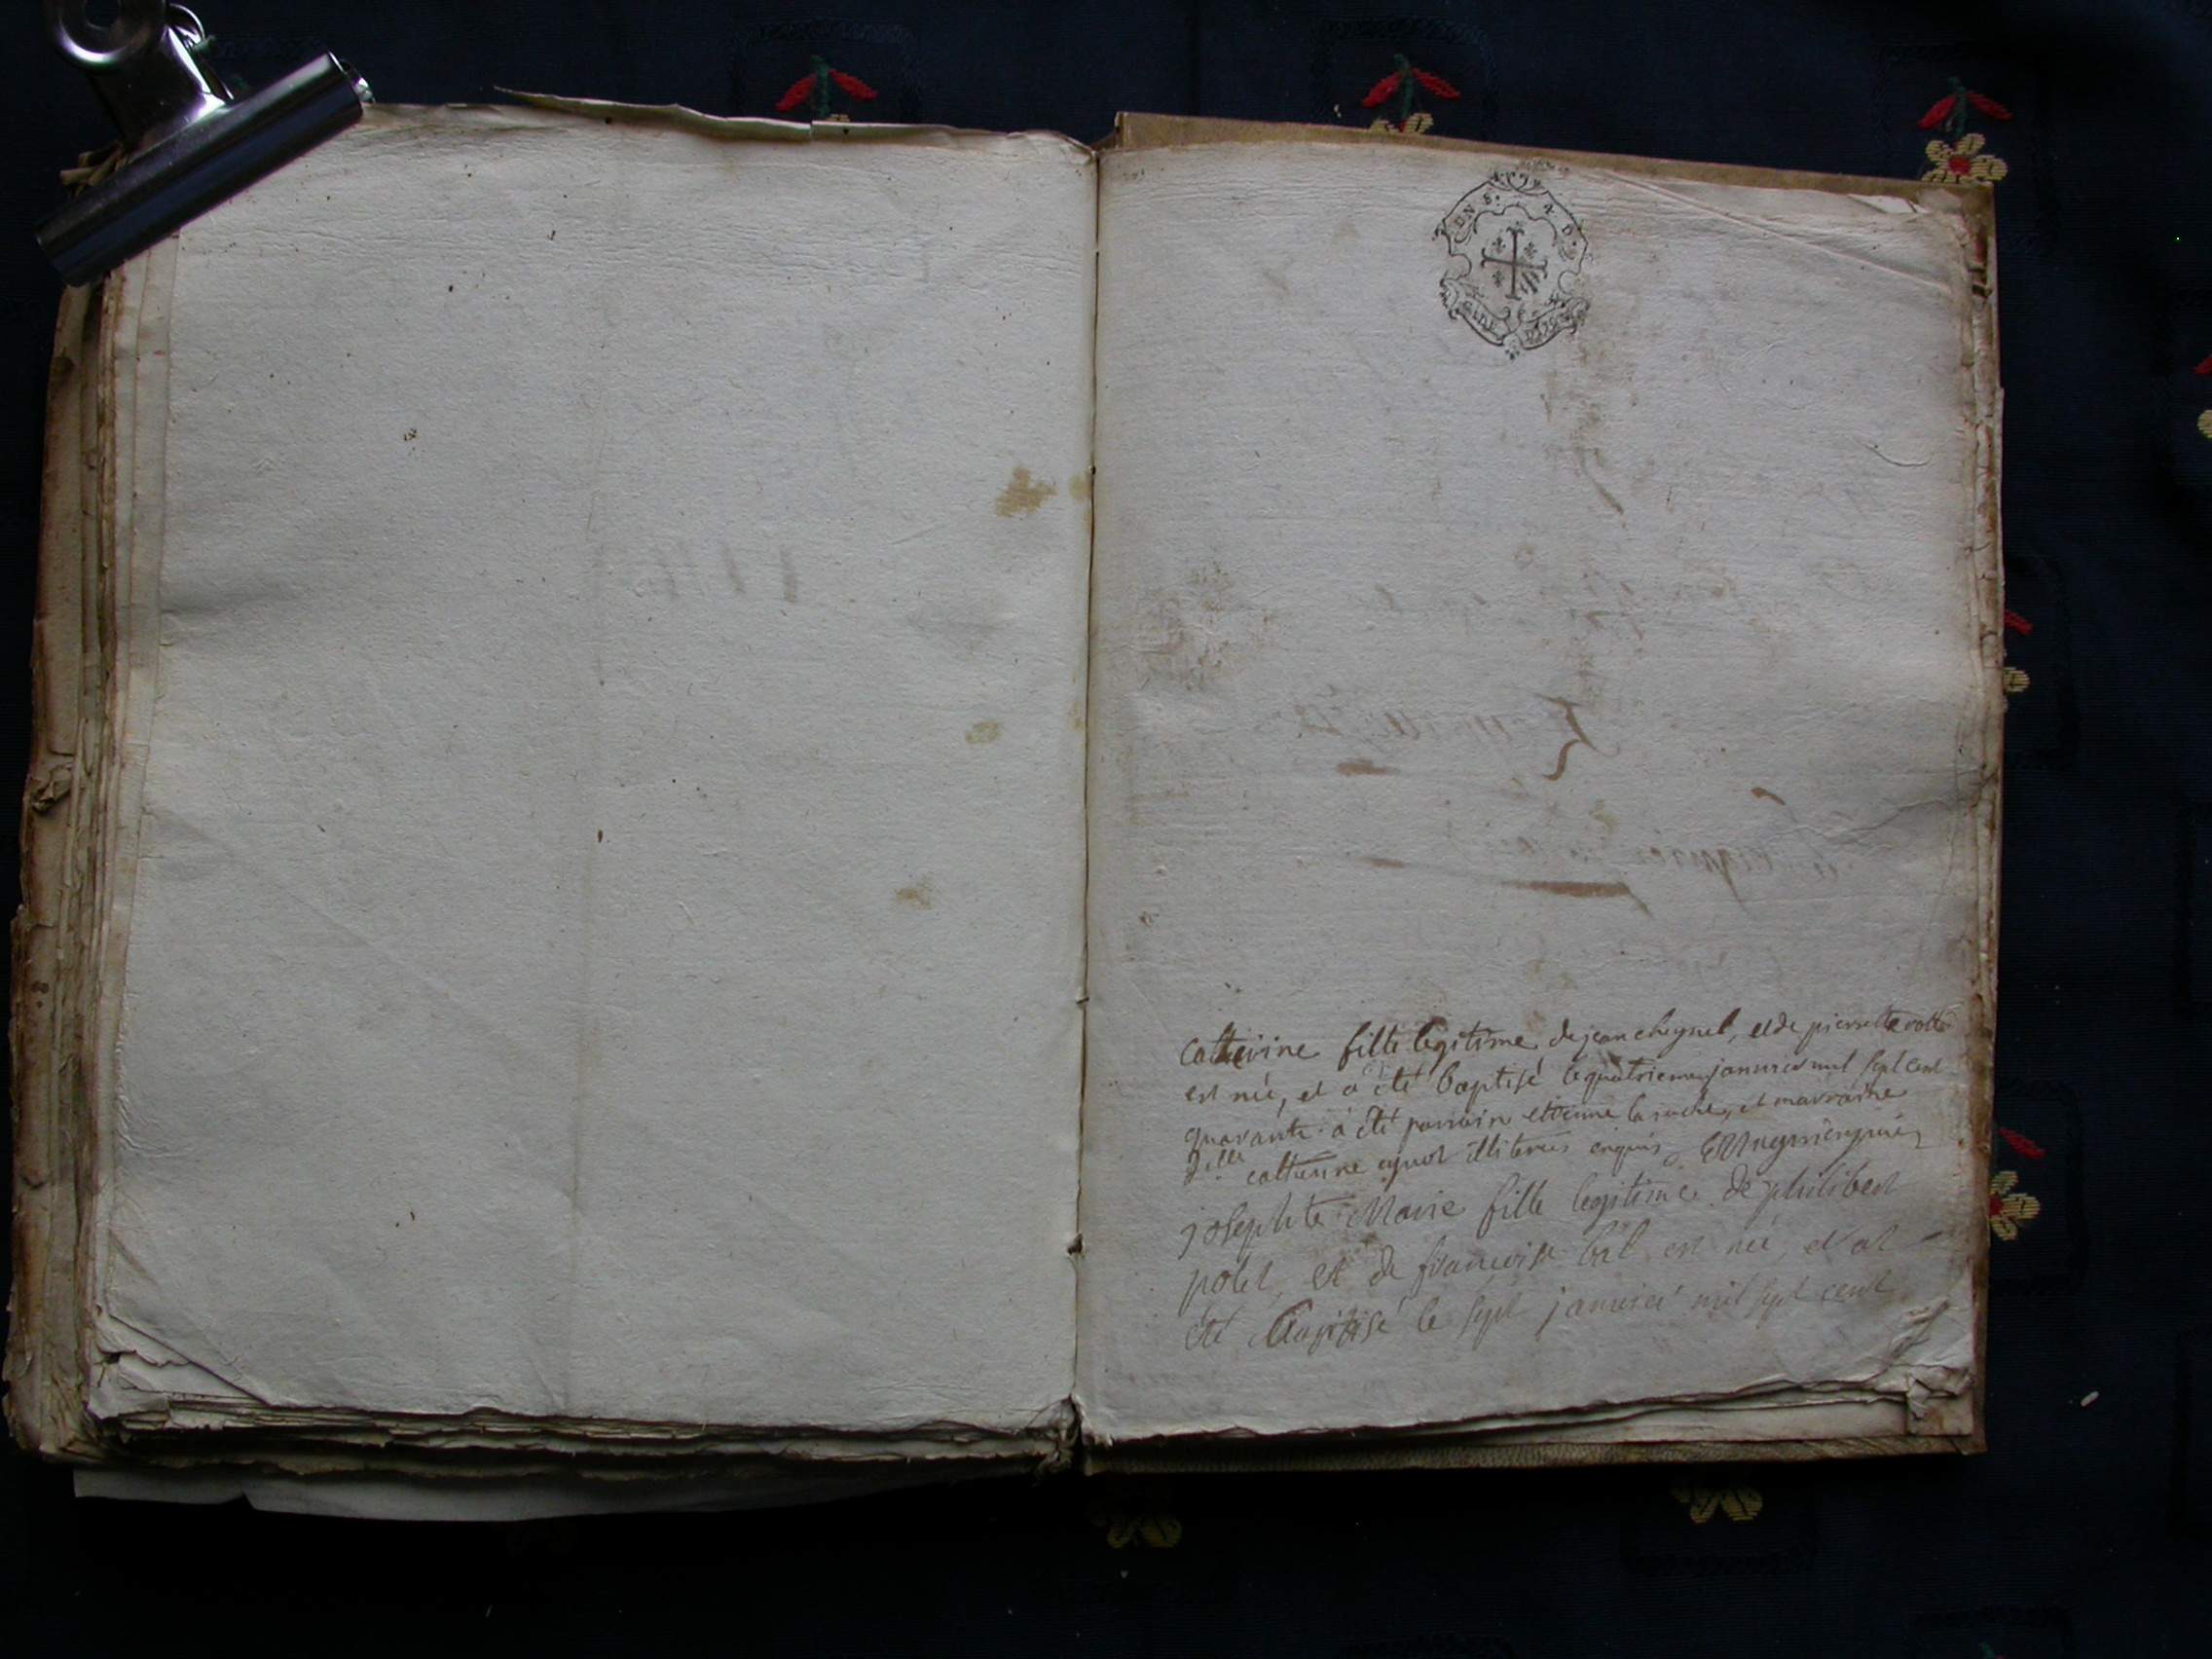 UN S. 4 D.
catherine fille legitime de jean cheynel, et de pierrette
est née, et a été baptisé le quatrieme janvier mil sept cent
quarante a été parrain etienne laroche, et marraine
dlle catherine illiterés enquis
josephte Marie fille legitime de philibert
polet, et de francoise bal est née, et at
été baptisé le sept janvier mil sept cent